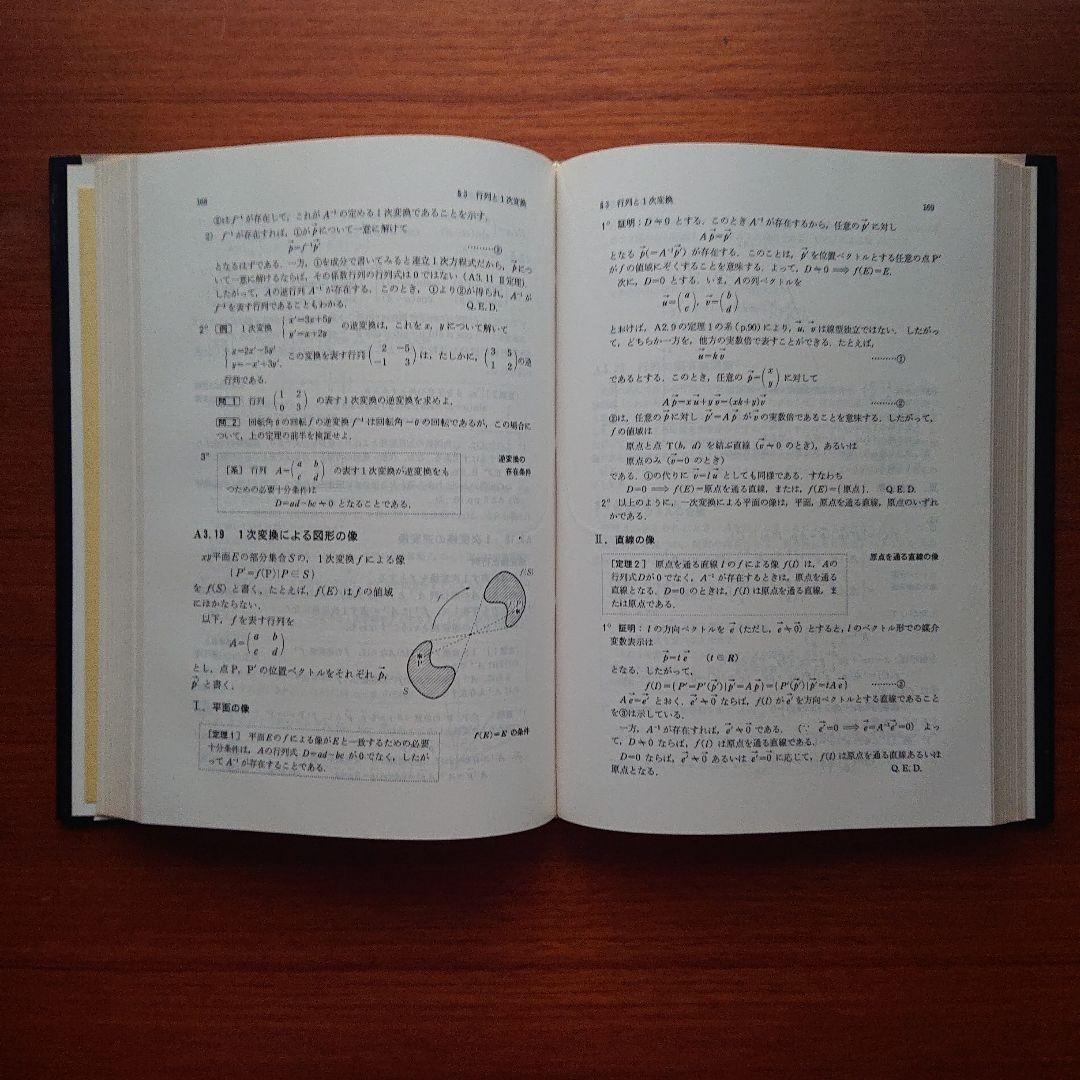 168
§3 行列と1次変換
②は f⁻¹ が存在して，これが A⁻¹ の定める1次変換であることを示す。
2) f⁻¹ が存在すれば，①が p⃗ について一意に解けて
p⃗=f⁻¹p⃗' ………③
となるはずである．一方，①を成分で書いてみると連立1次方程式だから，p⃗につ
いて一意に解けるならば，その係数行列の行列式は0ではない（A3.11 Ⅱ定理）．
したがって，A の逆行列 A⁻¹ が存在する．このとき，①より②が得られ，A⁻¹ が
f⁻¹ を表す行列であることもわかる． Q.E.D.
2° [例] 1次変換 {x'=3x+5y の逆変換は，これを x, y について解いて
y'=x+2y
{x=2x'-5y' この変換を表す行列 (2 -5) は，たしかに，(3 5) の逆
y=-x'+3y'. (-1 3) (1 2)
行列である．
[問1] 行列 (1 2) の表す1次変換の逆変換を求めよ．
(0 3)
[問2] 回転角 θ の回転 f の逆変換 f⁻¹ は回転角 -θ の回転であるが，この場合に
ついて，上の定理の前半を検証せよ．
3°
逆変換の
存在条件
[系] 行列 A=(a b) の表す1次変換が逆変換をも
(c d)
つための必要十分条件は
D=ad-bc≠0 となることである．
A3.19 1次変換による図形の像
xy平面Eの部分集合Sの，1次変換 f による像
{P'=f(P)|P∈S}
を f(S) と書く．たとえば，f(E) は f の値域
にほかならない．
以下，f を表す行列を
A=(a b)
(c d)
とし，点P, P'の位置ベクトルをそれぞれ p⃗,
p⃗' と書く．
f(S)
f
S
Ⅰ．平面の像
f(E)=E の条件
[定理1] 平面Eの f による像がEと一致するための必要
十分条件は，Aの行列式 D=ad-bc が0でなく，したが
って A⁻¹ が存在することである．
§3 行列と1次変換
169
1° 証明：D≠0 とする．このとき A⁻¹ が存在するから，任意の p⃗' に対し
Ap⃗=p⃗'
となる p⃗(=A⁻¹p⃗') が存在する．このことは，p⃗' を位置ベクトルとする任意の点 P'
が f の値域にぞくすることを意味する．よって，D≠0⟹f(E)=E.
次に，D=0 とする．いま，Aの列ベクトルを
u⃗=(a), v⃗=(b)
(c) (d)
とおけば，A2.9 の定理1の系 (p.90) により，u⃗, v⃗ は線型独立ではない．したがっ
て，どちらか一方を，他方の実数倍で表すことができる．たとえば，
u⃗=kv⃗ ………①
であるとする．このとき，任意の p⃗=(x) に対して
(y)
Ap⃗=xu⃗+yv⃗=(xk+y)v⃗ ………②
②は，任意の p⃗ に対し p⃗'=Ap⃗ が v⃗ の実数倍であることを意味する．したがって，
f の値域は
原点と点 T(b, d) を結ぶ直線 (v⃗≠0 のとき)，あるいは
原点のみ (v⃗=0 のとき)
である．①の代りに v⃗=lu⃗ としても同様である．すなわち
D=0⟹f(E)=原点を通る直線，または，f(E)={原点}． Q.E.D.
2° 以上のように，一次変換による平面の像は，平面，原点を通る直線，原点のいずれ
かである．
Ⅱ．直線の像
原点を通る直線の像
[定理2] 原点を通る直線 l の f による像 f(l) は，Aの
行列式Dが0でなく，A⁻¹ が存在するときは，原点を通る
直線となる．D=0 のときは，f(l) は原点を通る直線，ま
たは原点である．
1° 証明：l の方向ベクトルを e⃗ (ただし，e⃗≠0⃗) とすると，l のベクトル形での媒介
変数表示は
p⃗=te⃗ (t∈R)
となる．したがって，
f(l)={P'=P'(p⃗')|p⃗'=Ap⃗}={P'(p⃗')|p⃗'=tAe⃗} ………③
Ae⃗=e⃗' とおく．e⃗'≠0⃗ ならば，f(l) が e⃗' を方向ベクトルとする直線であること
を③は示している．
一方，A⁻¹ が存在すれば，e⃗'≠0⃗ である．(∵ e⃗'=0⟹e⃗=A⁻¹e⃗'=0) よっ
て，D≠0 ならば，f(l) は原点を通る直線である．
D=0 ならば，e⃗'≠0 あるいは e⃗'=0⃗ に応じて，f(l) は原点を通る直線あるいは
原点となる． Q.E.D.